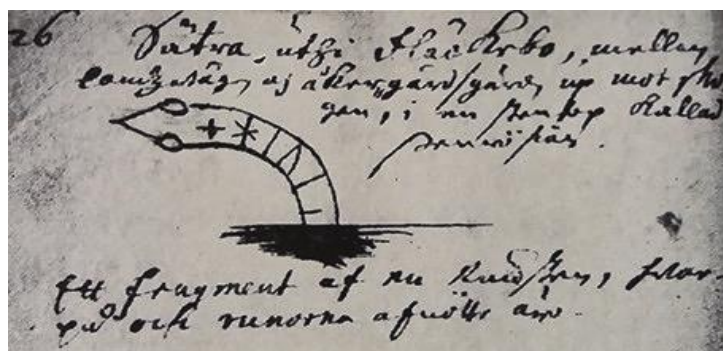 26
Sätra, uthi Fläckebo, mellan
landzväg och åkergärdsgård, up mot sko
gen, i en stenkop kallad
Ett fragment af en Runsten, hvar
på och runorna afnötte äro.